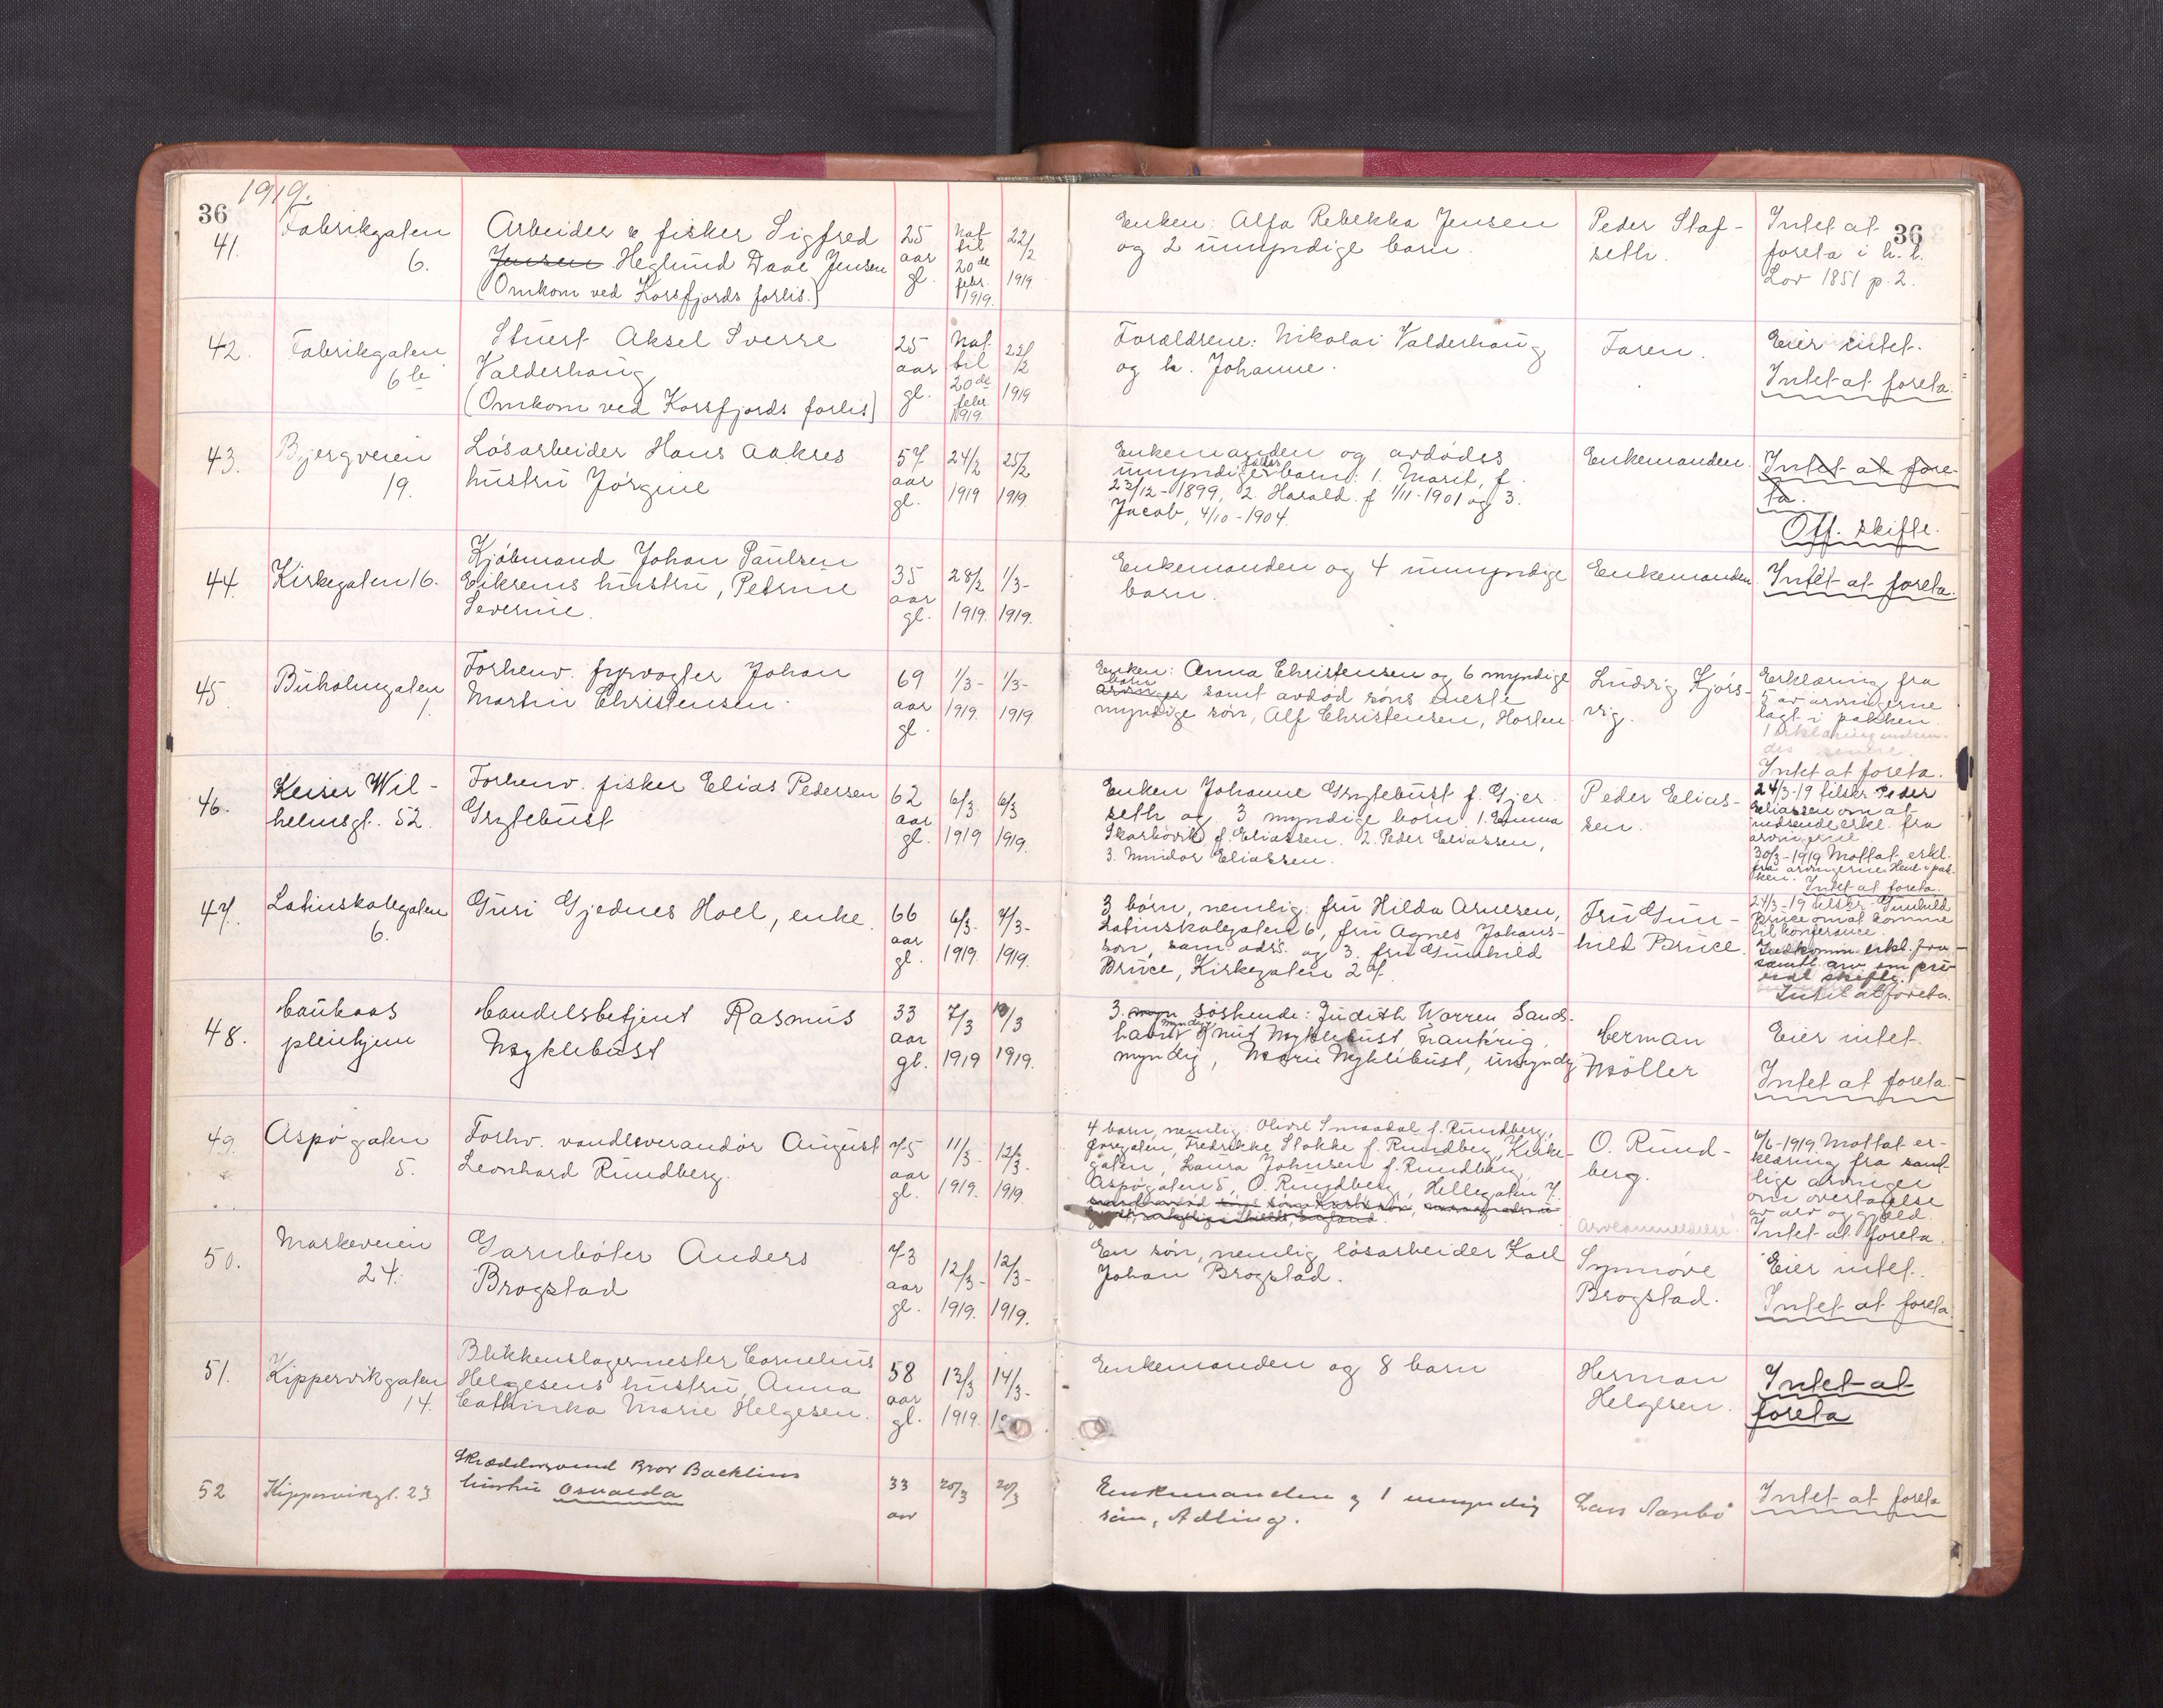 36
1919.
36
41.
Fabrikgaten
6.
Arbeider & fisker Sigfred
Jensen Heglund Daae Jensen
(Omkom ved Korsfjords forlis.)
25
aar
gl.
Nat
til
20de
febr.
1919.
22/2
1919.
Enken: Alfa Rebekka Jensen
og 2 umyndige barn.
Peder Staf-
seth.
Intet at
foreta i h. t.
Lov 1851 p. 2.
42.
Fabrikgaten
6b
Stuert Aksel Sverre
Valderhaug
(Omkom ved Korsfjords forlis)
25
aar
gl.
Nat
til
20de
febr.
1919.
22/2
1919
Forældrene: Nikolai Valderhaug
og h. Johanne.
Faren.
Eier intet.
Intet at foreta.
43.
Bjergveien
19.
Løsarbeider Hans Aakres
hustru Jørgine
57
aar
gl.
24/2
1919
25/2
1919.
Enkemanden og avdødes
umyndige barn: 1. Marit, f.
23/12-1899, 2. Harald f 1/11-1901 og 3.
Jacob, 4/10-1904.
Enkemanden.
Intet at fore-
ta.
Off. skifte.
44.
Kirkegaten 16.
Kjøbmand Johan Paulsen
Eiksems hustru, Petrine
Severine.
35
aar
gl.
28/2
1919.
1/3-
1919.
Enkemanden og 4 umyndige
barn.
Enkemanden
Intet at foreta.
45.
Buholmgaten
1.
Forhenv. fyrvogter Johan
Martin Christensen.
69
aar
gl.
1/3-
1919.
1/3-
1919
Enken: Anna Christensen og 6 myndige
barn
arvinger samt avdød søns eneste
myndige søn, Alf Christensen, Horten
Ludvig Kjørs-
vig.
Erklæring fra
5 av arvingerne
lagt i pakken.
1 erklæring indsen-
des senere.
Intet at foreta.
46.
Keiser Wil-
helmsgt. 52.
Forhenv. fisker Elias Pedersen
Grytebust
62
aar
gl.
6/3.
1919
6/3
1919.
Enken Johanne Grytebust f. Gjer-
seth og 3 myndige børn 1. Emma
Skarbøvik f. Eliassen. 2. Peder Eliassen,
3. Mindor Eliassen.
Peder Elias-
sen.
24/3-19 tilskr Peder
Eliassen om at
indsende erkl. fra
arvingerne
30/3-1919 Mottat erkl.
fra arvingerne. Henl i pak-
ken.
Intet at foreta.
47.
Latinskolegaten
6.
Guri Gjednes Hoel, enke.
66
aar
gl.
6/3-
1919.
7/3-
1919.
3 børn, nemlig: fru Hilda Arnesen,
Latinskolegaten 6, fru Agnes Johans-
son, sam. adrs. og 3. fru Gunhild
Bruce, Kirkegaten 27.
Fru Gun-
hild Bruce.
24/3-19 tilskr. Gunhild
Bruce om at komme
til konferance.
Indkomm. erkl. fra
samtl. arv. om pri-
vat skifte.
Intet at foreta.
48.
Cauhaas
pleiehjem
Handelsbetjent Rasmus
Myklebust
33
aar
gl.
7/3
1919
10/3
1919.
3. myn søskende: Judith Warren Sands-
havn myndig Knut Myklebust Frankrig,
myndig, Marie Myklebust, umyndig
Herman
Møller
Eier intet.
Intet at foreta.
49.
Aspøgaten
5.
Forhv. vandleverandør August
Leonhard Rundberg.
75
aar
gl.
11/3-
1919.
12/3-
1919.
4 barn, nemlig: Olivie Smaadal f. Rundberg,
Fredrikke Stokke f. Rundberg, Kirke-
gaten, Laura Johnsen f. Rundberg
Aspøgaten 5, O. Rundberg, Hellegaten 7.
O. Rund-
berg.
6/6-1919. Mottat er-
klæring fra samt-
lige arvinger
om overtagelse
av arv og gjæld.
Intet at foreta.
50.
Markeveien
24.
Garnbøter Anders
Brogstad
73
aar
gl.
12/3-
1919.
12/3-
1919.
En søn, nemlig løsarbeider Karl
Johan Brogstad.
Synnøve
Brogstad.
Eier intet.
Intet at foreta
51.
Kippervikgaten
14.
Blikkenslagermester Cornelius
Helgesens hustru Anna
Cathinka Marie Helgesen.
58
aar
gl.
13/3
1919.
14/3-
Enkemanden og 8 barn
Herman
Helgesen.
Intet at
foreta
52
Kippervikgt. 23
Skræddersvend Bror Backlins
hustru Osvalda
33
aar
20/3
20/3
Enkemanden og 1 umyndig
søn, Adling.
Lars Aambø
Intet at foreta